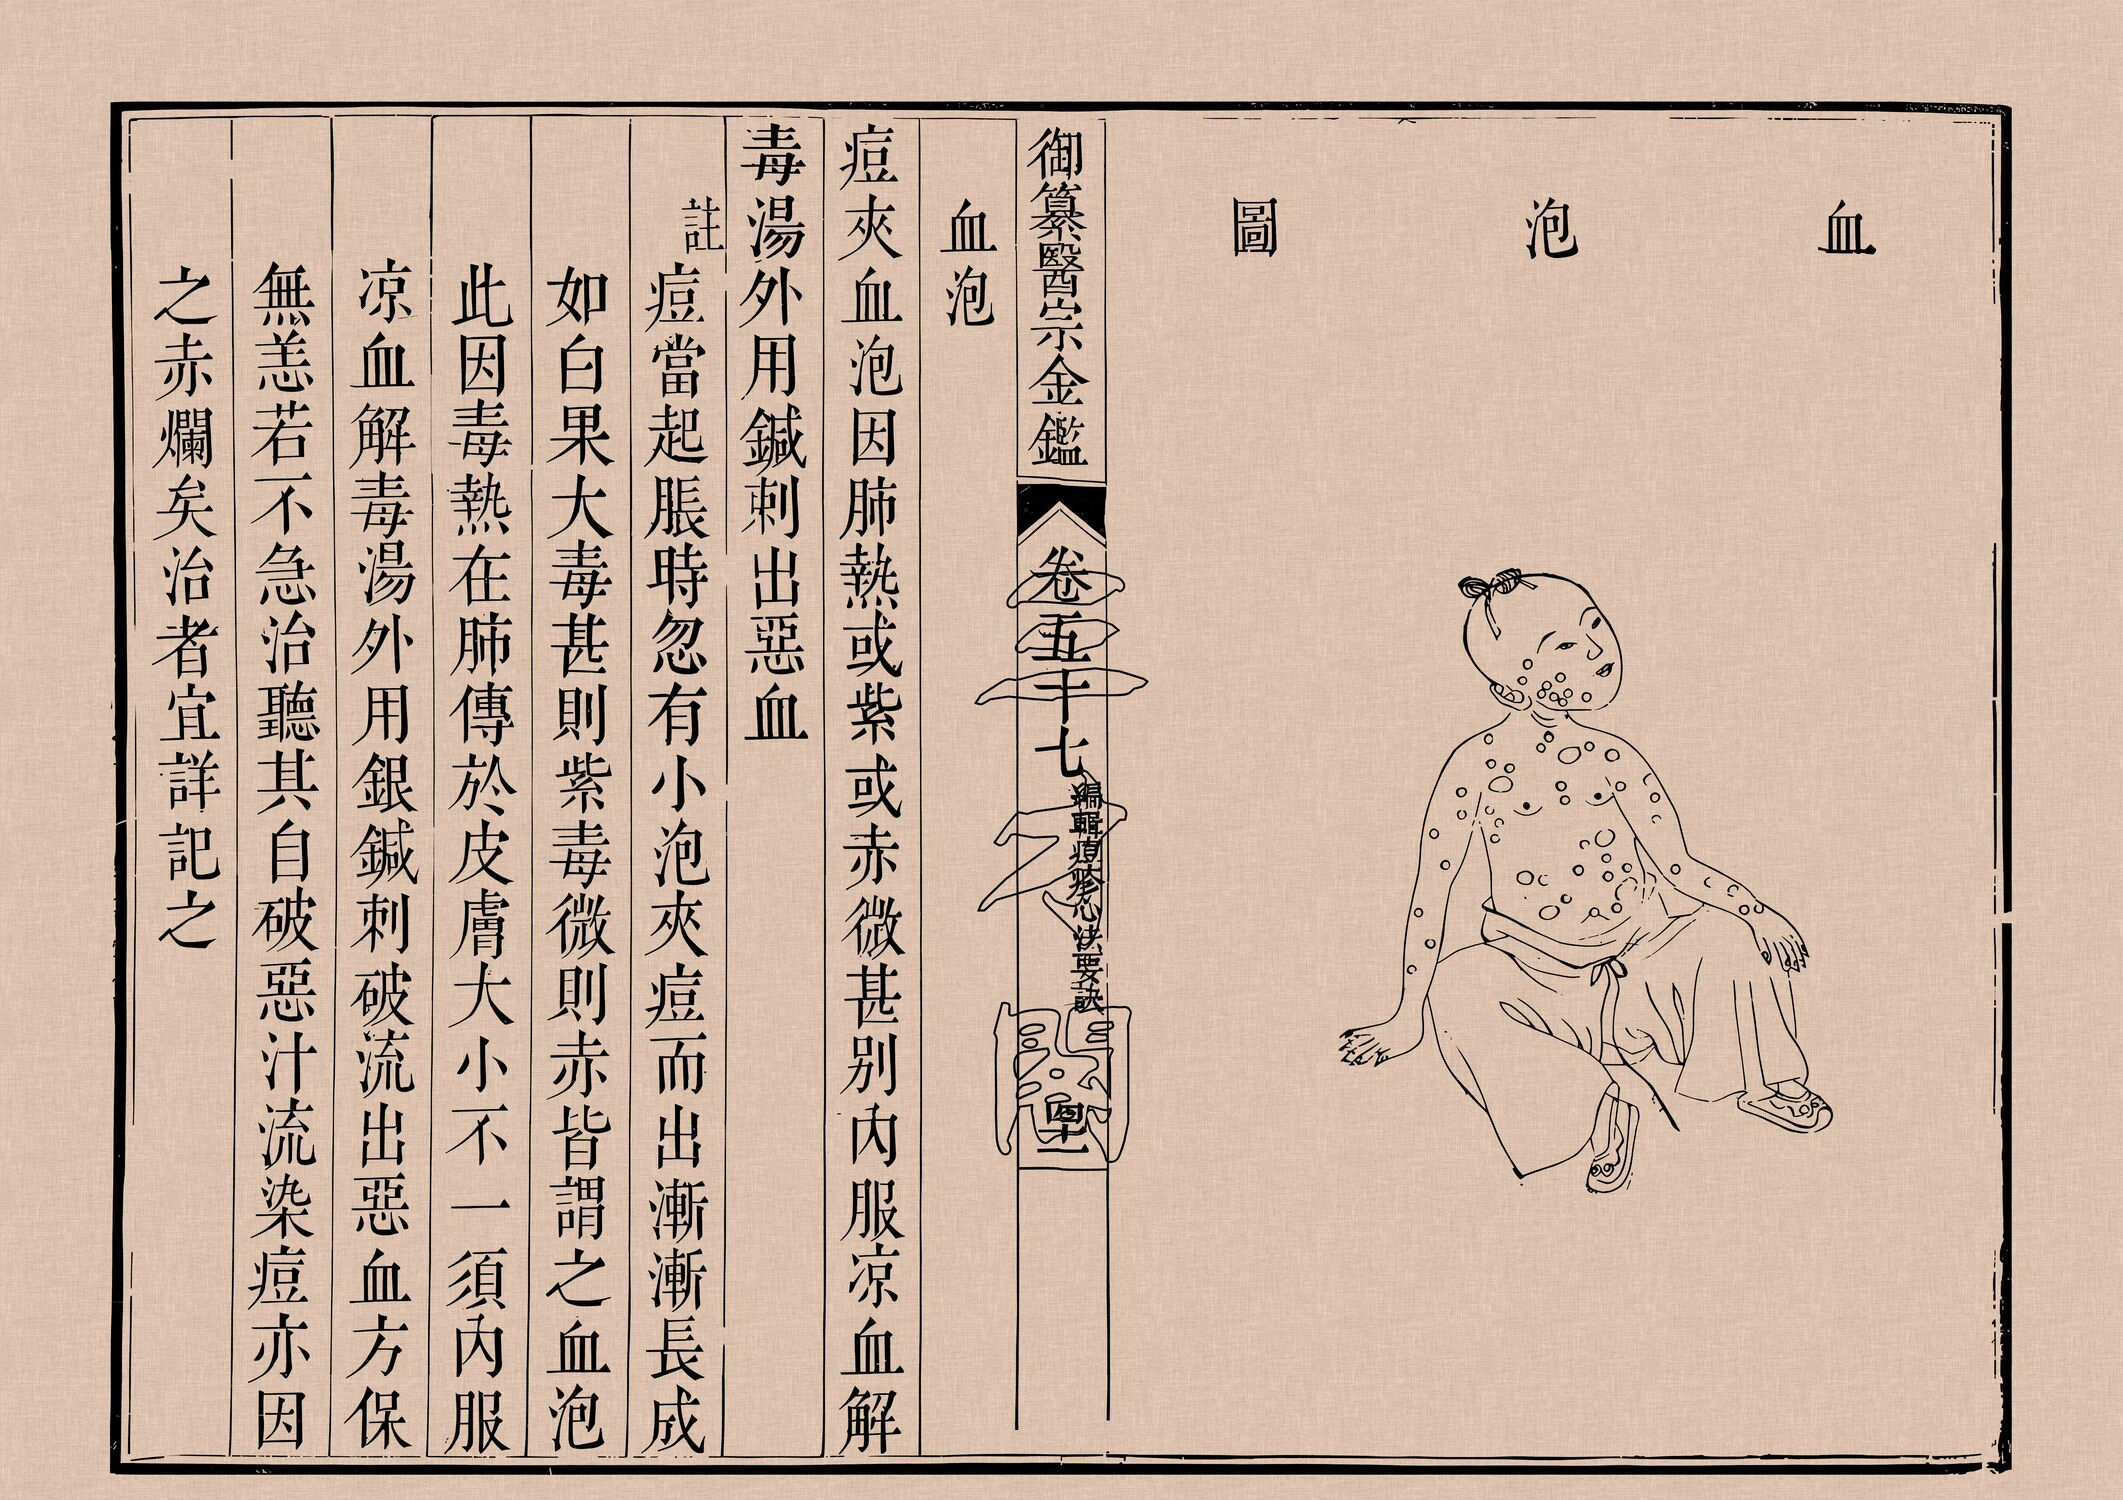 血泡圖
御纂醫宗金鑑
卷五十七
編輯痘疹心法要訣
血泡
痘夾血泡因肺熱或紫或赤微甚别內服凉血解
毒湯外用鍼刺出惡血
註
痘當起脹時忽有小泡夾痘而出漸漸長成
如白果大毒甚則紫毒微則赤皆謂之血泡
此因毒熱在肺傳於皮膚大小不一須內服
凉血解毒湯外用銀鍼刺破流出惡血方保
無恙若不急治聽其自破惡汁流染痘亦因
之赤爛矣治者宜詳記之